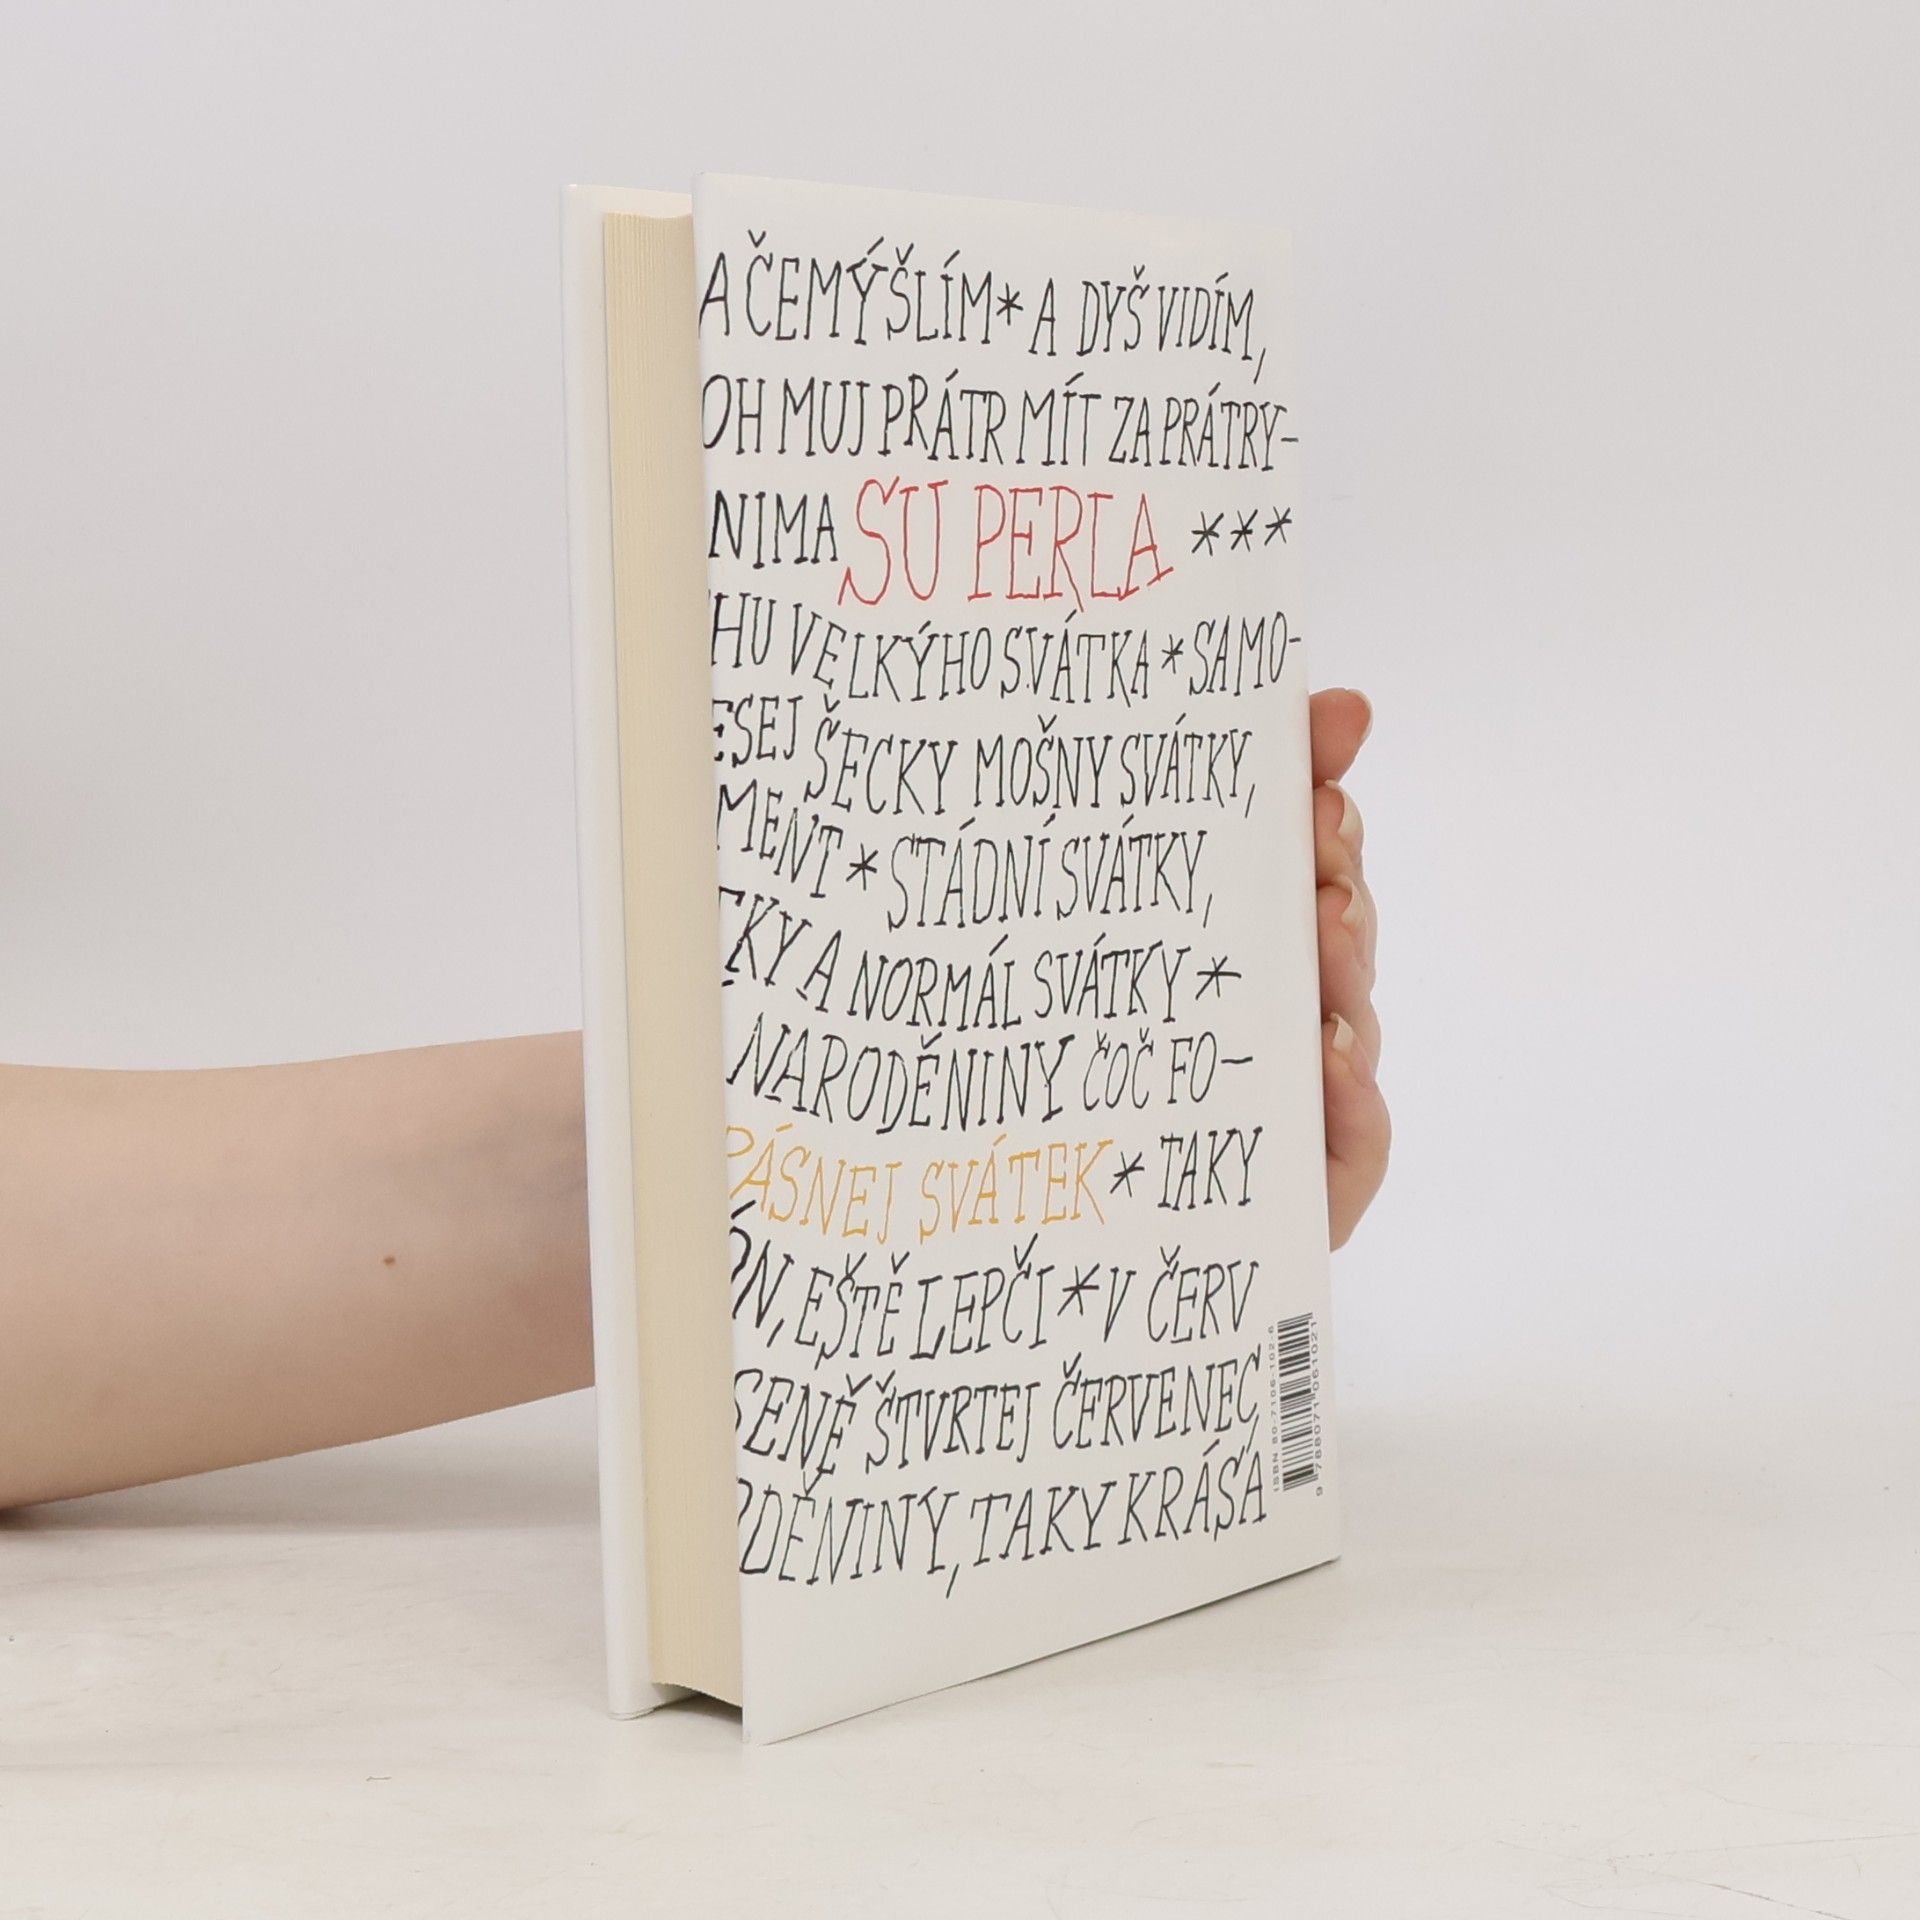 A ČEMÝŠLÍM * A DYŠ VIDÍM,
OH MUJ PRÁTR MÍT ZA PRÁTRY-
NIMA SU PERLA ***
HU VELKÝHO SVÁTKA * SAMO-
ESEJ ŠECKY MOŠNY SVÁTKY,
MENT * STÁDNÍ SVÁTKY,
TKY A NORMÁL SVÁTKY *
NARODĚNINY ČOČ FO-
PÁSNEJ SVÁTEK * TAKY
N, EŠTĚ LEPČI * V ČERV
SENĚ ŠTVRTEJ ČERVENEC,
DĚNINY, TAKY KRÁSA
ISBN 80-7106-102-6
9 788071 061021